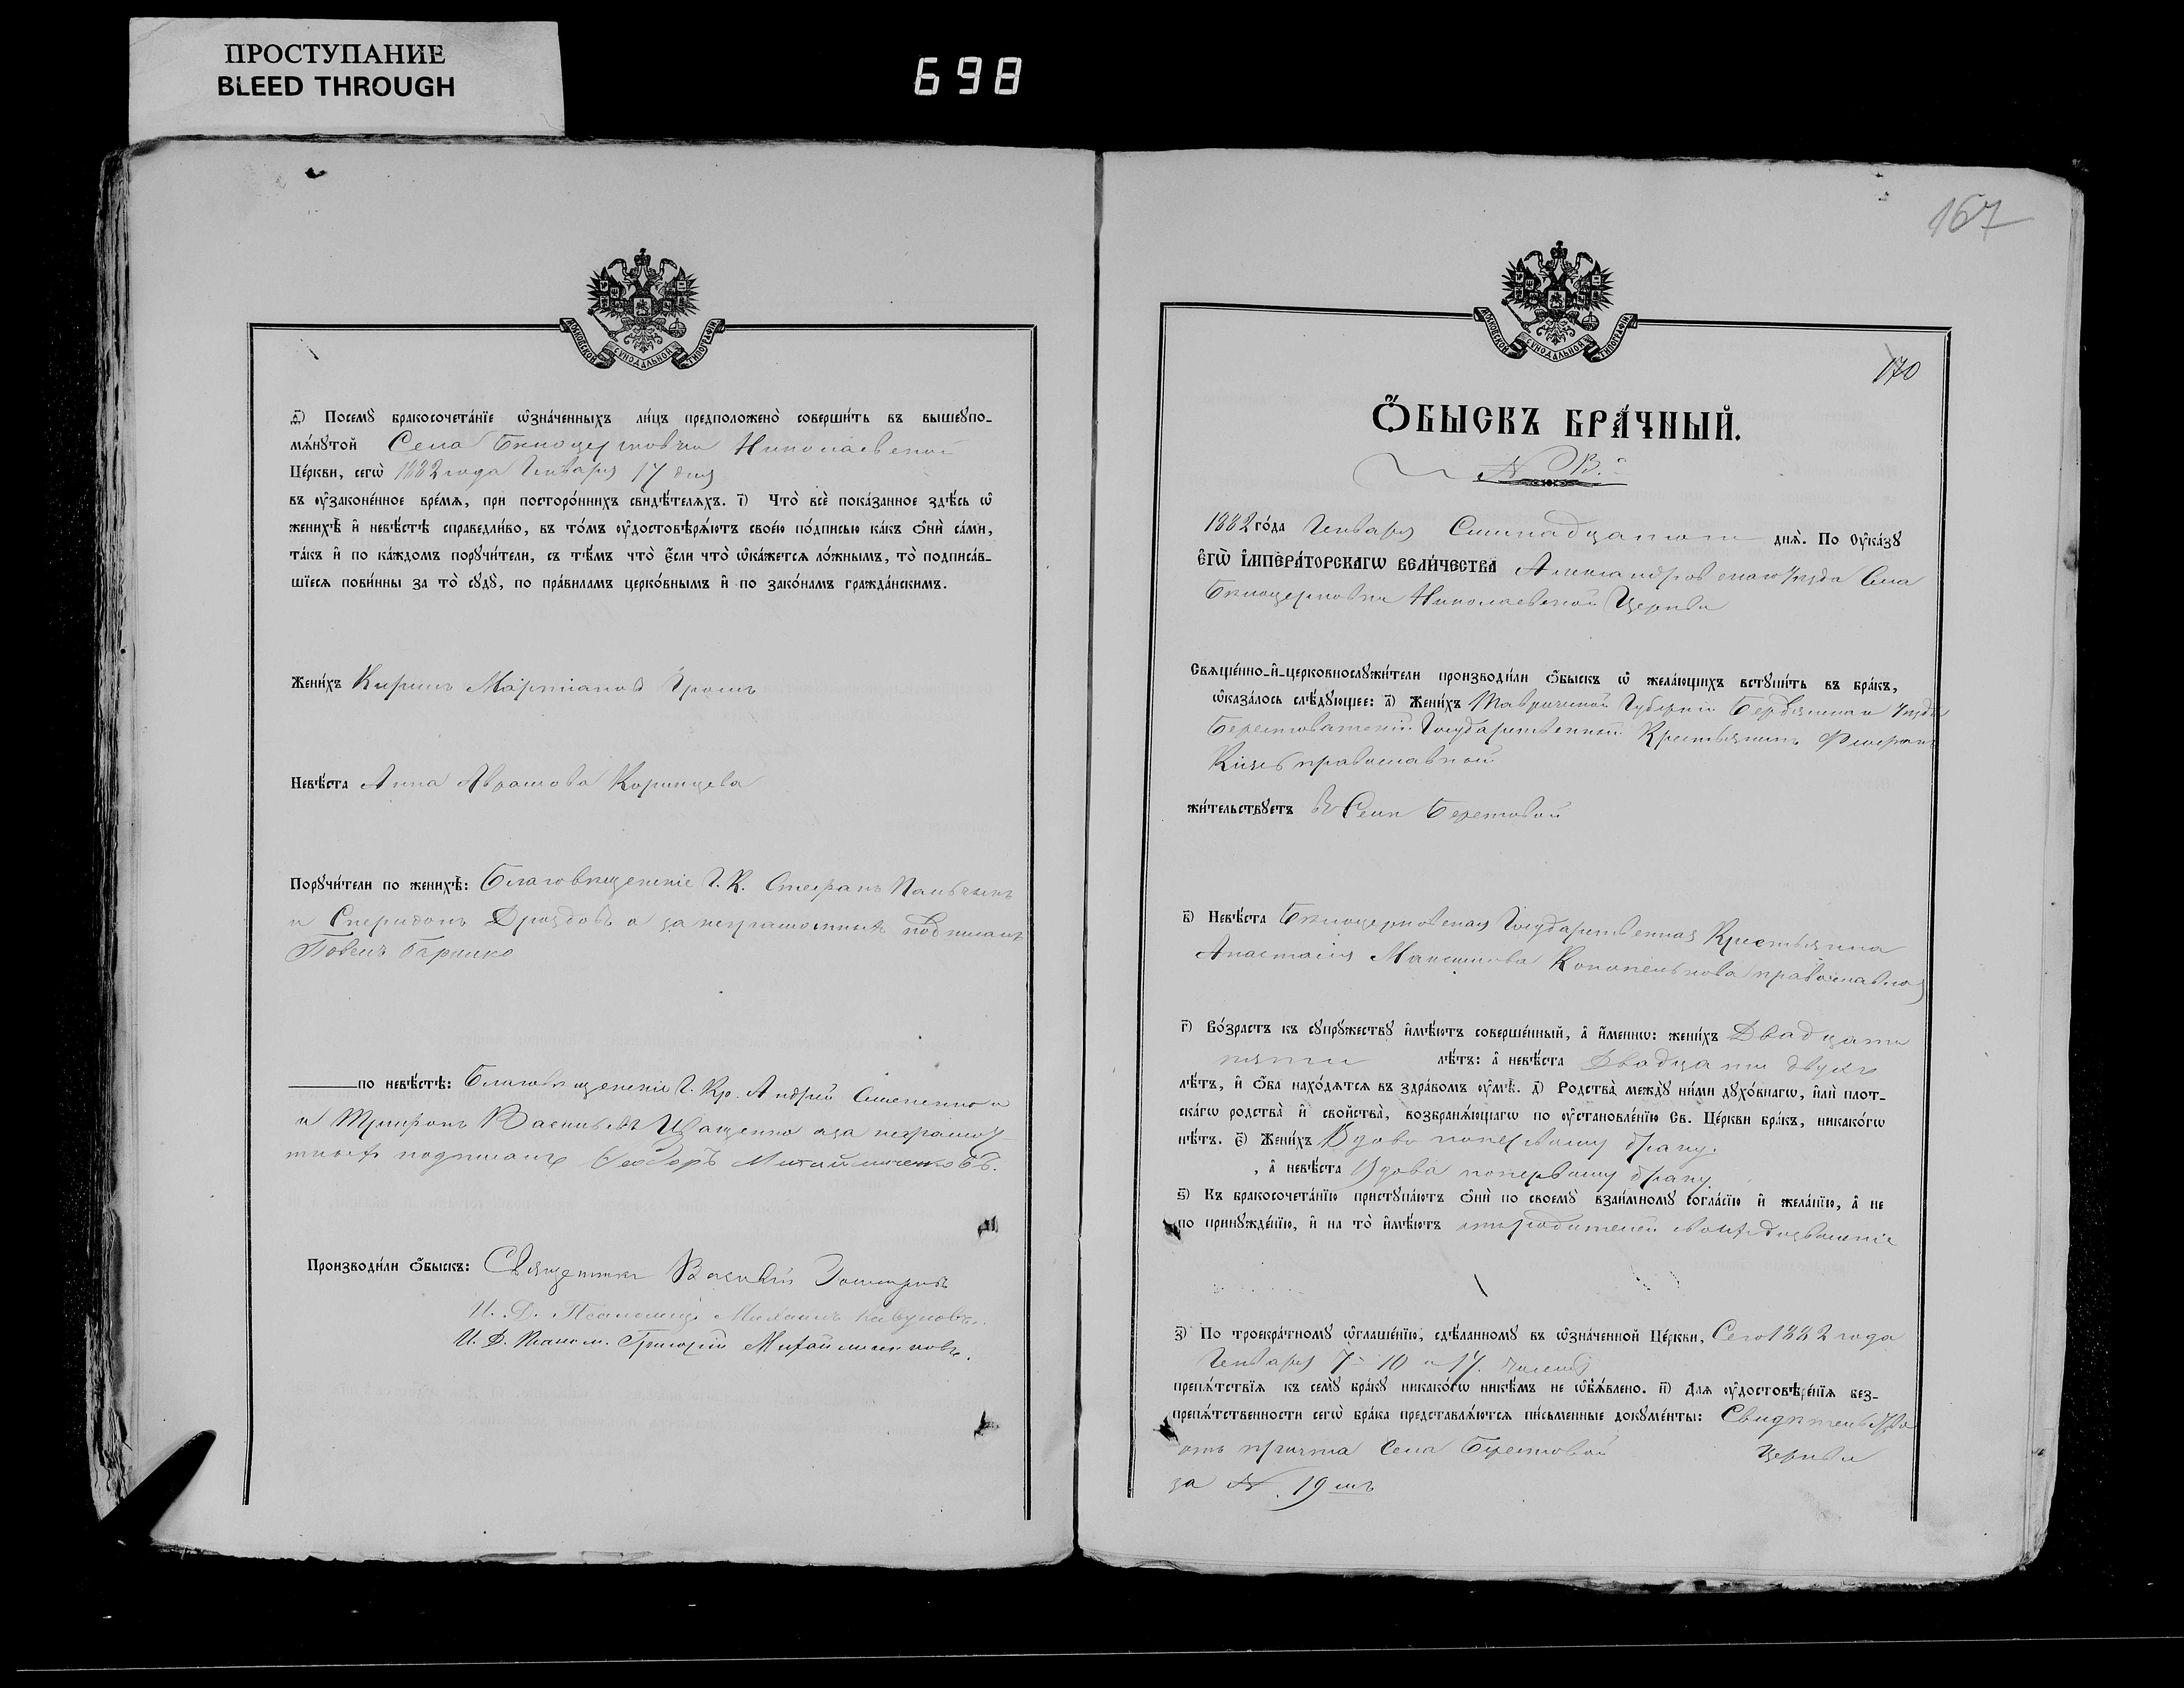 ПРОСТУПАНИЕ
BLEED THROUGH
698
МОСКОВСКОЙ СУНОДАЛЬНОЙ ТИПОГРАФІИ
д҃) Посемꙋ̀ бракосочета́нїе ѡ҆зна́ченныхъ ли́цъ предположено̀ соверши́ть въ вышеꙋпо-
мѧ́нꙋтой Села Бѣлоцерковки Николаевской
Це́ркви, сегѡ̀ 1882 года Генваря 17 дня
въ ᲂу҆законе́нное вре́мѧ, при посторо́ннихъ свидѣ́телѧхъ. і҃) Что̀ всѐ пока́занное здѣ́сь ѡ҆
женихѣ̀ и҆ невѣ́стѣ справедли́во, въ то́мъ ᲂу҆достовѣрѧ́ютъ свое́ю по́дписью ка́къ ѻ҆нѝ са́ми,
та́къ и҆ по ка́ждомъ порꙋчи́тели, съ тѣ́мъ что̀ є҆́сли что̀ ѡ҆ка́жетсѧ ло́жнымъ, то̀ подписа́в-
шїесѧ пови́нны за то̀ сꙋдꙋ̀, по пра́виламъ церко́внымъ и҆ по зако́намъ гражда́нскимъ.
Жени́хъ Кирилъ Мартіановъ Громъ
Невѣ́ста Анна Абрамова
Порꙋчи́тели по женихѣ̀: Благовѣщенскіе Г. К. Стефанъ
и Спиридонъ Дроздовъ а за неграмотныхъ подписалъ
Павелъ
по невѣ́стѣ: Благовѣщенскіе Г. Кр. Андрей
и Трифонъ Васильевъ Иващенко а за неграмот
ныхъ подписалъ Ѳеодоръ Михайличенковъ.
Производи́ли ѻ҆́быскъ: Священникъ Василій
И. Д. Псаломщ. Михаилъ
И. Д. Псалом. Григорій Михайличенковъ.
167
МОСКОВСКОЙ СУНОДАЛЬНОЙ ТИПОГРАФІИ
170
Ѻ҆́БЫСКЪ БРА́ЧНЫЙ.
№ В.
1882 го́да Генваря Семнадцатого днѧ̀. По Оу҆ка́зꙋ
Є҆ГѠ̀ И҆МПЕРА́ТОРСКАГѠ ВЕЛИ́ЧЕСТВА Александровскаго Уѣзда Села
Бѣлоцерковки Николаевской Церкви
Свѧще́нно-и҆-церковнослꙋжи́тели производи́ли ѻ҆́быскъ ѡ҆ жела́ющихъ встꙋпи́ть въ бра́къ,
ѡ҆каза́лось слѣ́дꙋющее: а҃) Жени́хъ Таврической Губерніи Бердянскаго Уѣзда
Берестоватскій Государственный Крестьянинъ
православной
жи́тельствꙋетъ въ Селѣ Берестовой
в҃) Невѣ́ста Бѣлоцерковская Государственная Крестьянка
Анастасія Максимова православная
г҃) Во́зрастъ къ сꙋпрꙋ́жествꙋ и҆мѣ́ютъ соверше́нный, а҆ и҆́менно: жени́хъ Двадцати
пяти лѣ́тъ: а҆ невѣ́ста Двадцати двухъ
лѣ́тъ, и҆ ѻ҆́ба нахо́дѧтсѧ въ здра́вомъ ᲂу҆мѣ̀. д҃) Родства̀ междꙋ̀ ни́ми дꙋхо́внагѡ, и҆лѝ плот-
ска́гѡ родства̀ и҆ свойства̀, возбранѧ́ющагѡ по ᲂу҆становле́нїю Св. Це́ркви бра́къ, никако́гѡ
нѣ́тъ. є҃) Жени́хъ Вдовъ по первому браку.
, а҆ невѣ́ста Вдова по первому браку.
ѕ҃) Къ бракосочета́нїю пристꙋпа́ютъ ѻ҆нѝ по своемꙋ̀ взаи́мномꙋ согла́сїю и҆ жела́нїю, а҆ не
по принꙋжде́нїю, и҆ на то̀ и҆мѣ́ютъ отъ родителей своихъ дозволеніе
з҃) По троекра́тномꙋ ѡ҆глаше́нїю, сдѣ́ланномꙋ въ ѡ҆зна́ченной Це́ркви, Сего 1882 года
Генваря 7 10 и 17. числъ
препѧ́тствїѧ къ семꙋ̀ бра́кꙋ никако́гѡ никѣ́мъ не ѡ҆б̾ѧ́влено. и҃) Длѧ ᲂу҆достовѣре́нїѧ без-
препѧ́тственности сегѡ̀ бра́ка представлѧ́ютсѧ пи́сьменные докꙋме́нты: Свидѣтельство
отъ причта Села Берестовой Церкви
за № 19 мъ